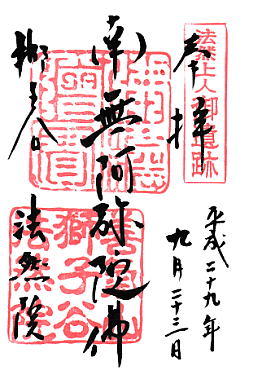 奉拝
法然上人御遺跡
平成二十九年
九月二十三日
南無阿弥陀佛
獅子谷
法然院
善氣山
獅子谷
法然院